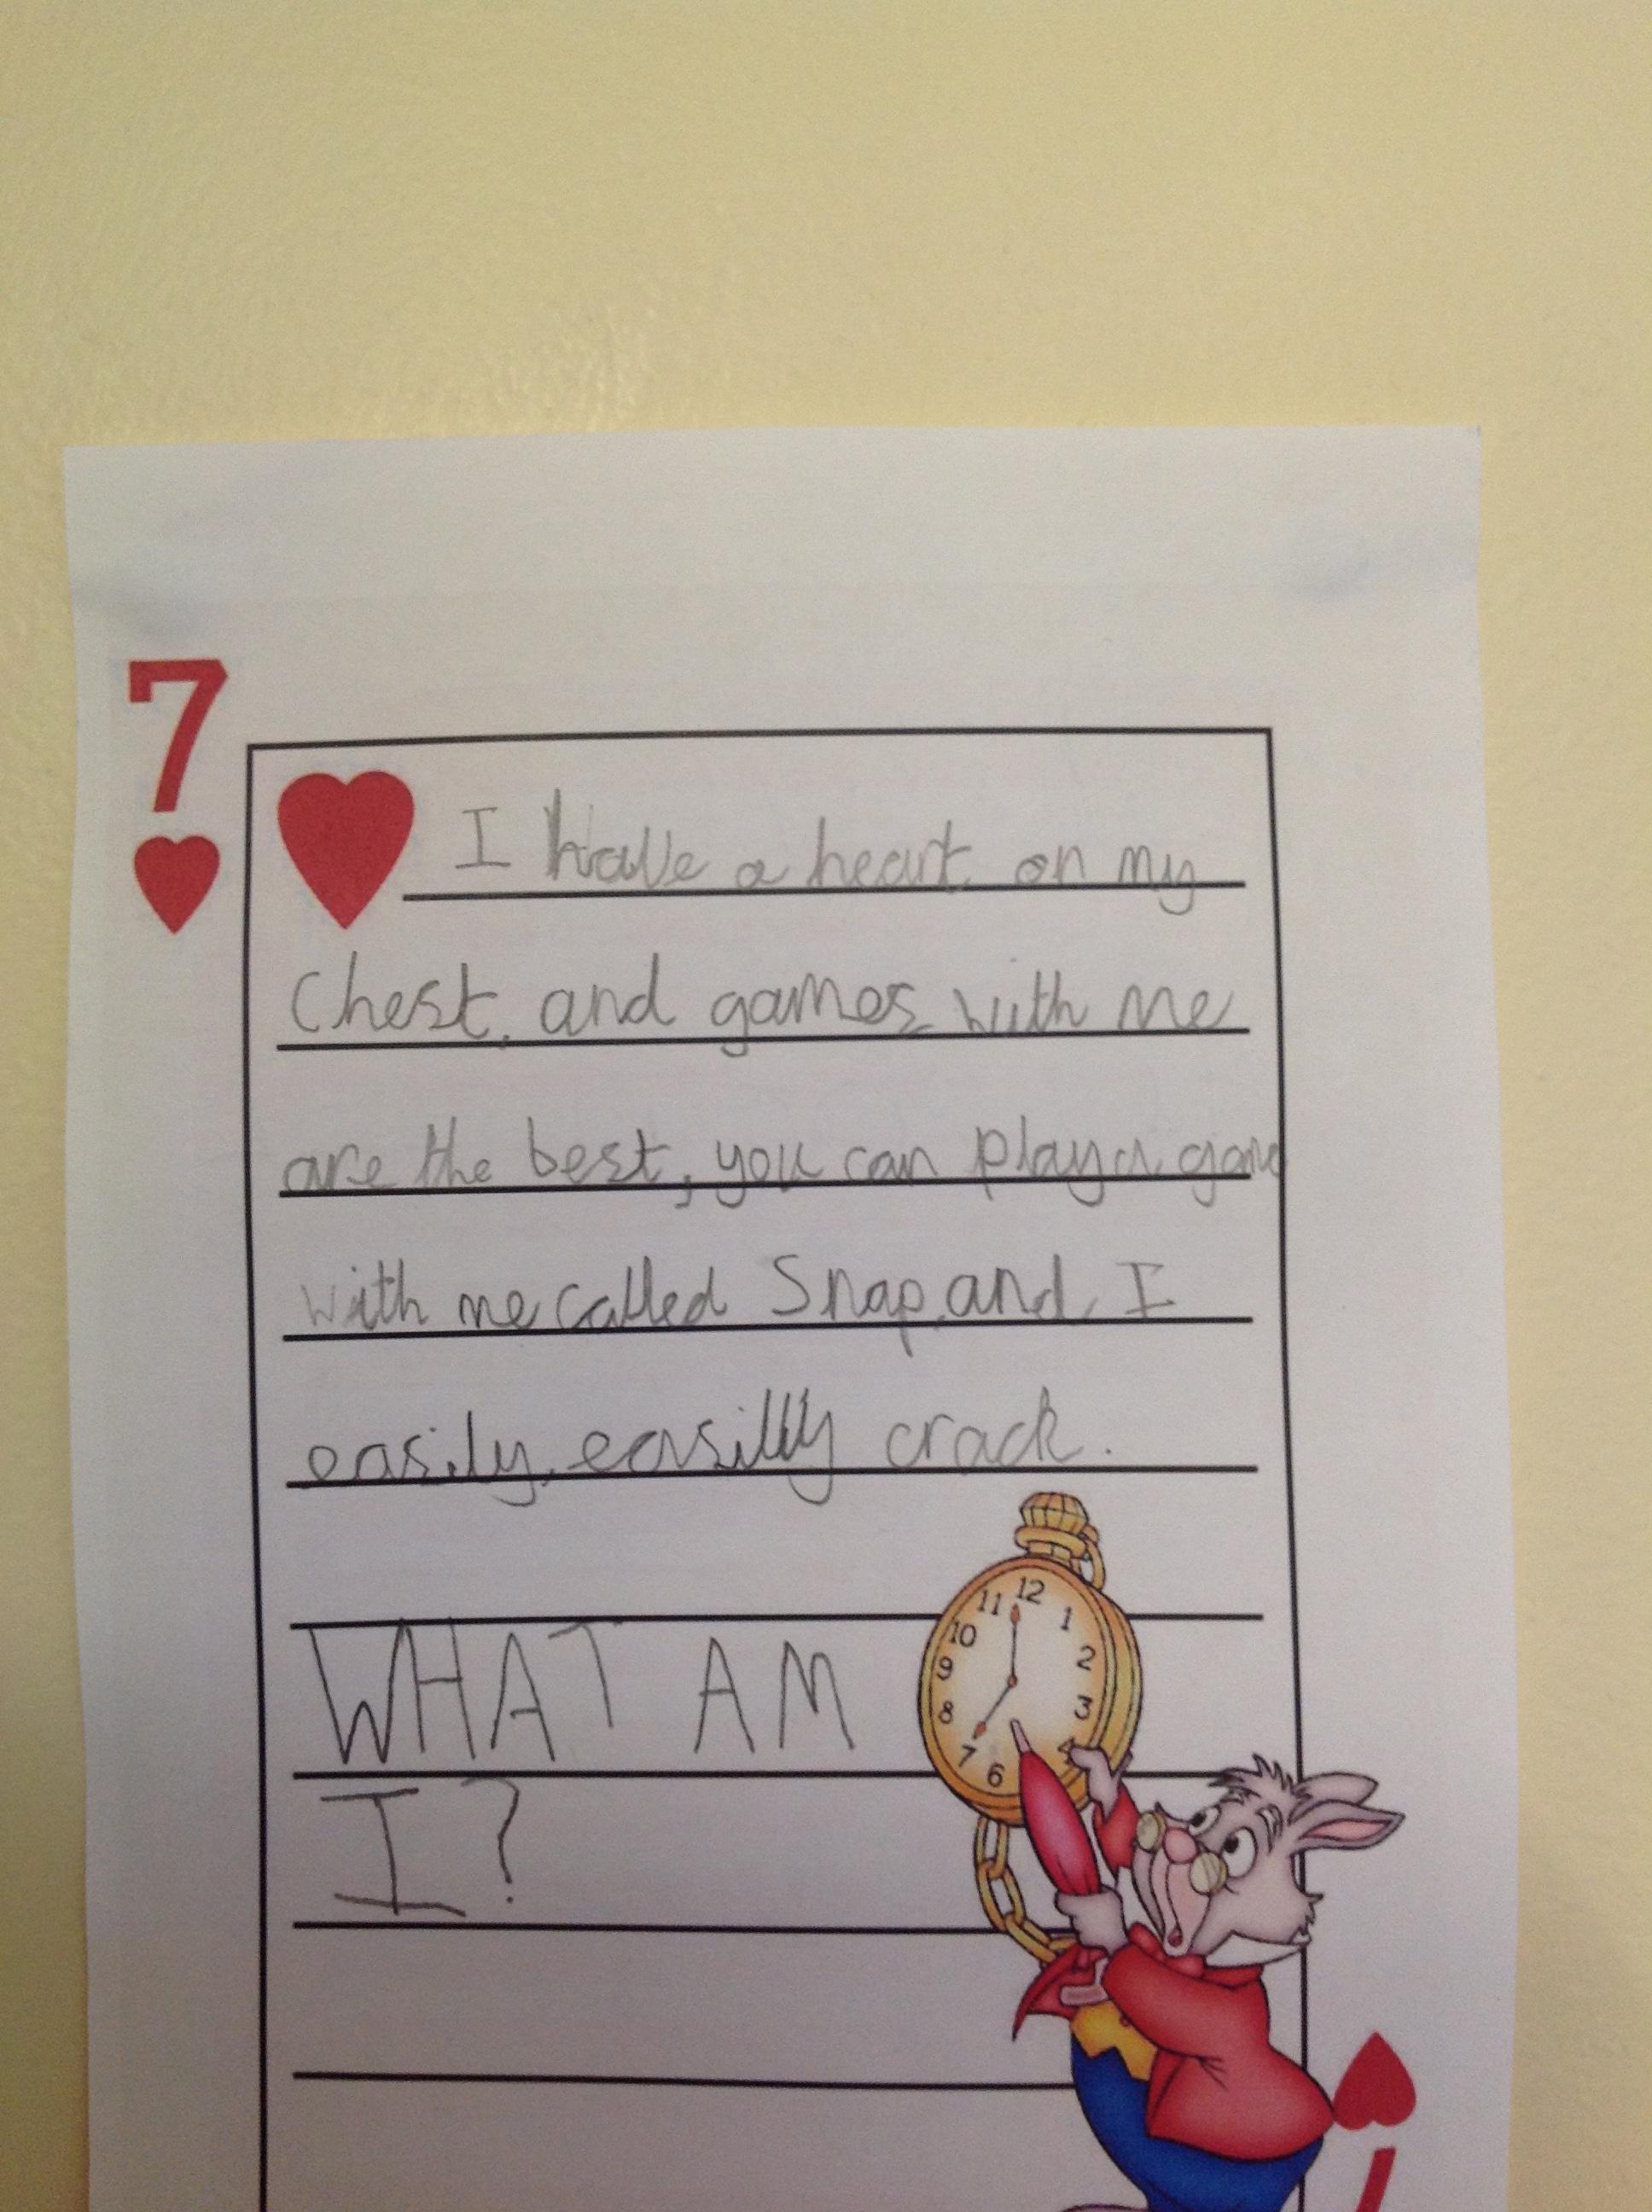 7
I have a heart on my
Chest, and games with me
are the best, you can play a game
with me called Snap, and, I
easily, easilly crack.
WHAT AM
I?
11 12 1
10 2
9 3
8 4
7 6
7